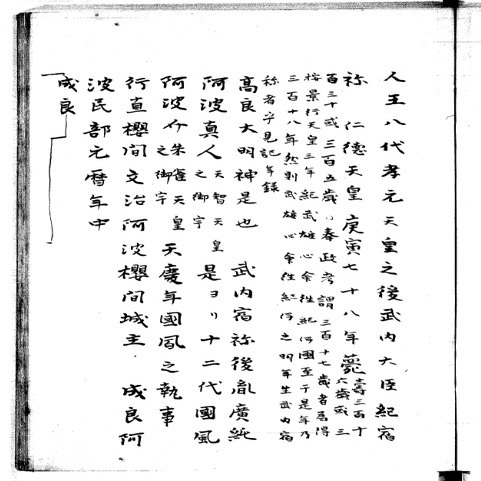 人王八代孝元天皇之後武内大臣紀宿
祢 仁徳天皇庚寅七十八年薨壽三百十六歳或三
百三十或三百五歳リ奉政考謂三百十七歳者為得
按景行天皇三年紀武雄心命住紀伊國至于是年乃
三百十八年然則武雄心命住紀伊之明年生武内宿
祢者乎見記年録
高良大明神是也 武内宿祢後胤廣純
阿波真人天智天皇之御宇是ヨリ十二代國風
阿波介朱雀天皇之御宇天慶年國風之執事
行直櫻間文治阿波櫻間城主 成良阿
波民部元暦年中
成良